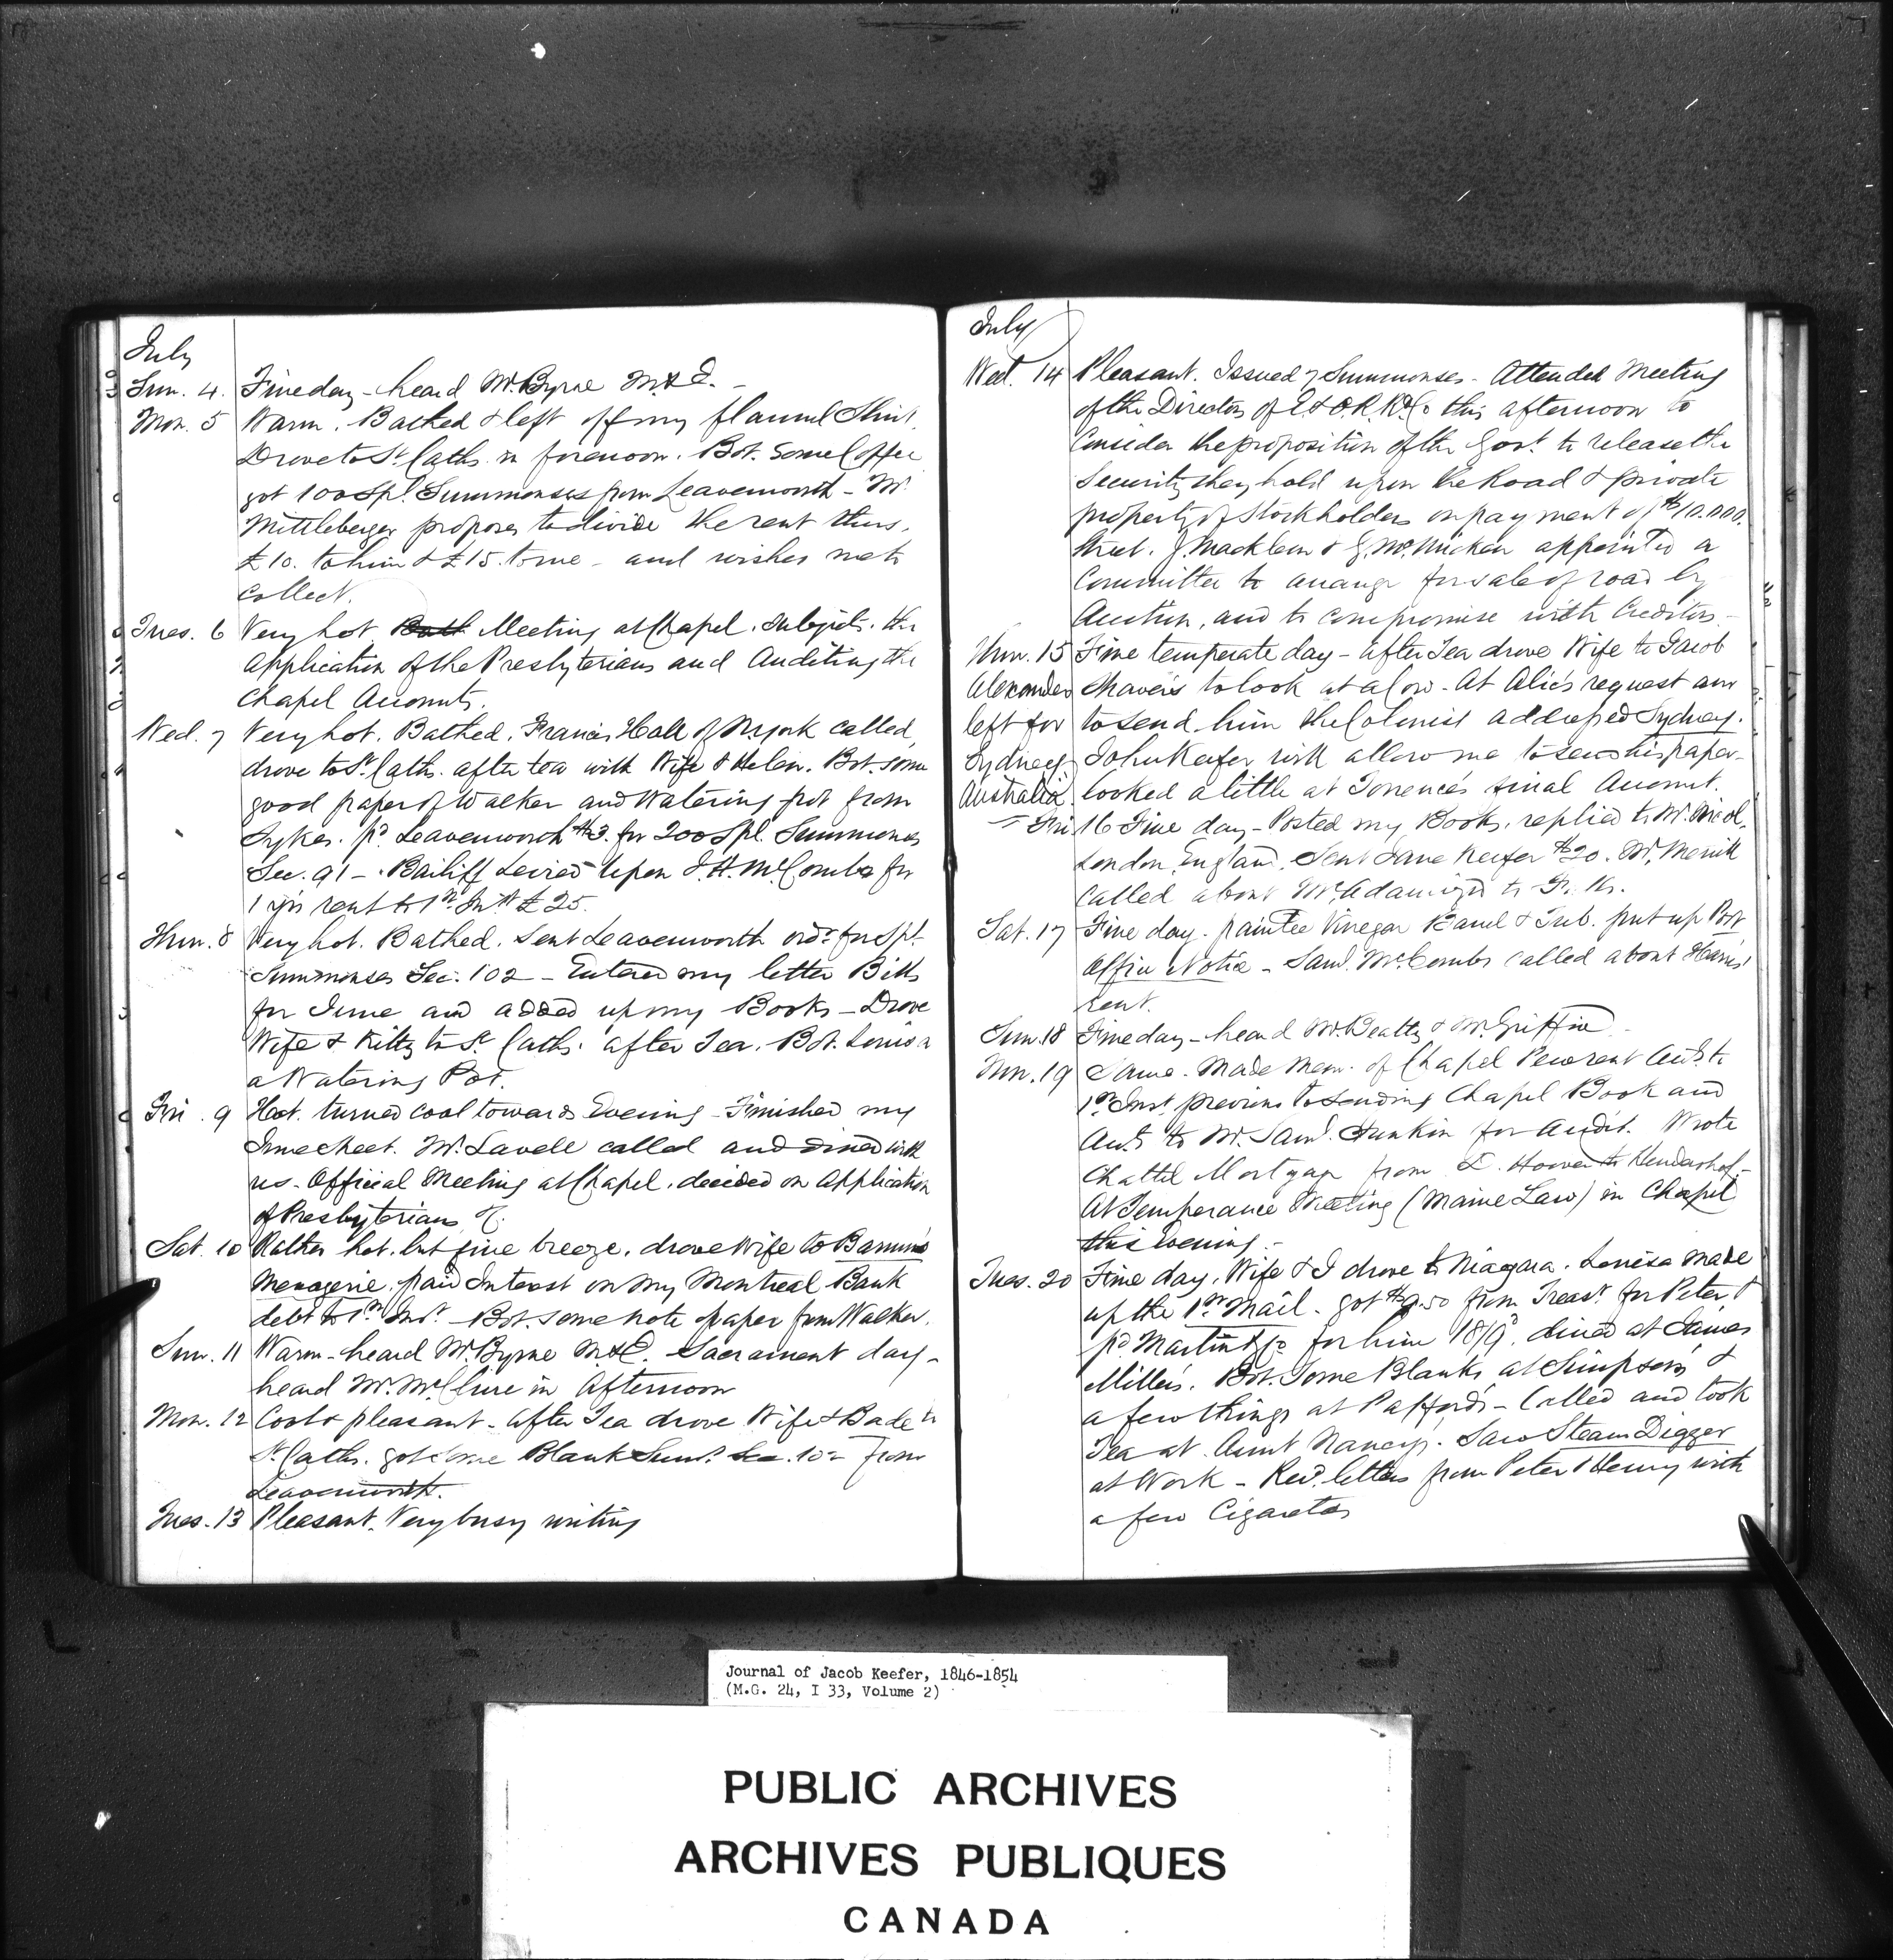 July
Sun. 4. Fine day - heard Mr. Byrne M & E. -
Mon. 5 Warm. Bathed & left off my flannel Shirt.
Drove to St. Caths. in forenoon. Bot. some Coffee
got 100 Spl. Summonses from Leavenworth - Mr.
Mittleberger proposes to divide the rent thus,
£10. to him & £15. to me - and wishes me to
Collect.
Tues. 6 Very hot Meeting at Chapel. Subjects. the
Application of the Presbyterians and Auditing the
Chapel Accounts.
Wed. 7 Very hot. Bathed. Francis Hall of N York called,
drove to St. Caths. after tea with Wife & Helen. Bot. some
good paper of Walker and Watering pot from
Sykes. pd. Leavenworth $3. for 200 Spl. Summonses
Sec. 91 - Bailiff Levied upon J. H. McCombs for
1 yrs rent to 1st Inst £25.
Thur. 8 Very hot. Bathed. Sent Leavenworth ordr. for Spl.
Summonses Sec. 102 - Entered my letter Bills
for June and added up my Books - Drove
Wife & Kitty to St. Caths. after Tea. Bot. Louisa
a Watering Pot.
Fri. 9 Hot. turned cool towards Evening - Finished my
Time sheet. Mr. Lavell called and dined with
us - Official Meeting at Chapel. decided on Application
of Presbyterians &c.
Sat. 10 Rather hot. but fine breeze. drove Wife to Barnum's
Menagerie. paid Interest on my Montreal Bank
debt to 1st Inst. - Bot. some note paper from Walker.
Sun. 11 Warm - heard Mr. Byrne M & E. Sacrament day -
heard Mr. McClure in Afternoon
Mon. 12 Cool & pleasant - after Tea drove Wife & Babe to
St. Caths. got some Blank Sums. Sec. 102 from
Leavenworth.
Tues. 13 Pleasant. Very busy writing
July
Wed. 14 Pleasant. Issued 7 Summonses - Attended Meeting
of the Directors of E & O. R. Rd. Co this afternoon to
Consider the proposition of the Govt. to release the
Security they hold upon the Road & private
property of Stockholders on payment of $10.000.
Street. J. Macklem & G. McMicken appointed a
Committee to arrange for sale of road by
Auction, and to compromise with Creditors. -
Thur. 15 Fine temperate day - after Tea drove Wife to Jacob
Alexander Shaver's to look at a Cow - At Alic's request am
left for to send him the Colonist addressed Sydney.
Sydney John Keefer will allow me to send his paper -
Australia. looked a little at Torrence's final Account.
Fri 16 Fine day - Posted my Books. replied to Mr. Nicol,
London, England. Sent Jane Keefer $20. Mr. Merritt
called about McAdamized to
Sat. 17 Fine day. painted Vinegar Barrel & Tub. put up Post
Office Notice - Saml. McCombs called about Harris'
rent.
Sun. 18 Fine day - heard Mr. Beatty & Mr. Griffin -
Mon. 19 Same. Made Mem. of Chapel Pew rent Accts. to
1st Inst previous to sending Chapel Book and
Accts. to Mr. Saml. Junkin for Audit. Wrote
Chattel Mortgage from D. Hoover to Hendershot -
At Temperance Meeting (Maine Law) in Chapel
this evening. -
Tues. 20 Fine day. Wife & I drove to Niagara. Louisa made
up the 1st Mail. got $9.50 from Treasr. for Peter &
pd Martin & Co for him 18/9. dined at James
Miller's. Bot. Some Blanks at Simpson's &
a few things at Paffords - Called and took
Tea at Aunt Nancy's. Saw Steam Digger
at Work - Recd. letters from Peter & Henry with
a few Cigaretos
Journal of Jacob Keefer, 1846-1854
(M.G. 24, I 33, Volume 2)
PUBLIC ARCHIVES
ARCHIVES PUBLIQUES
CANADA